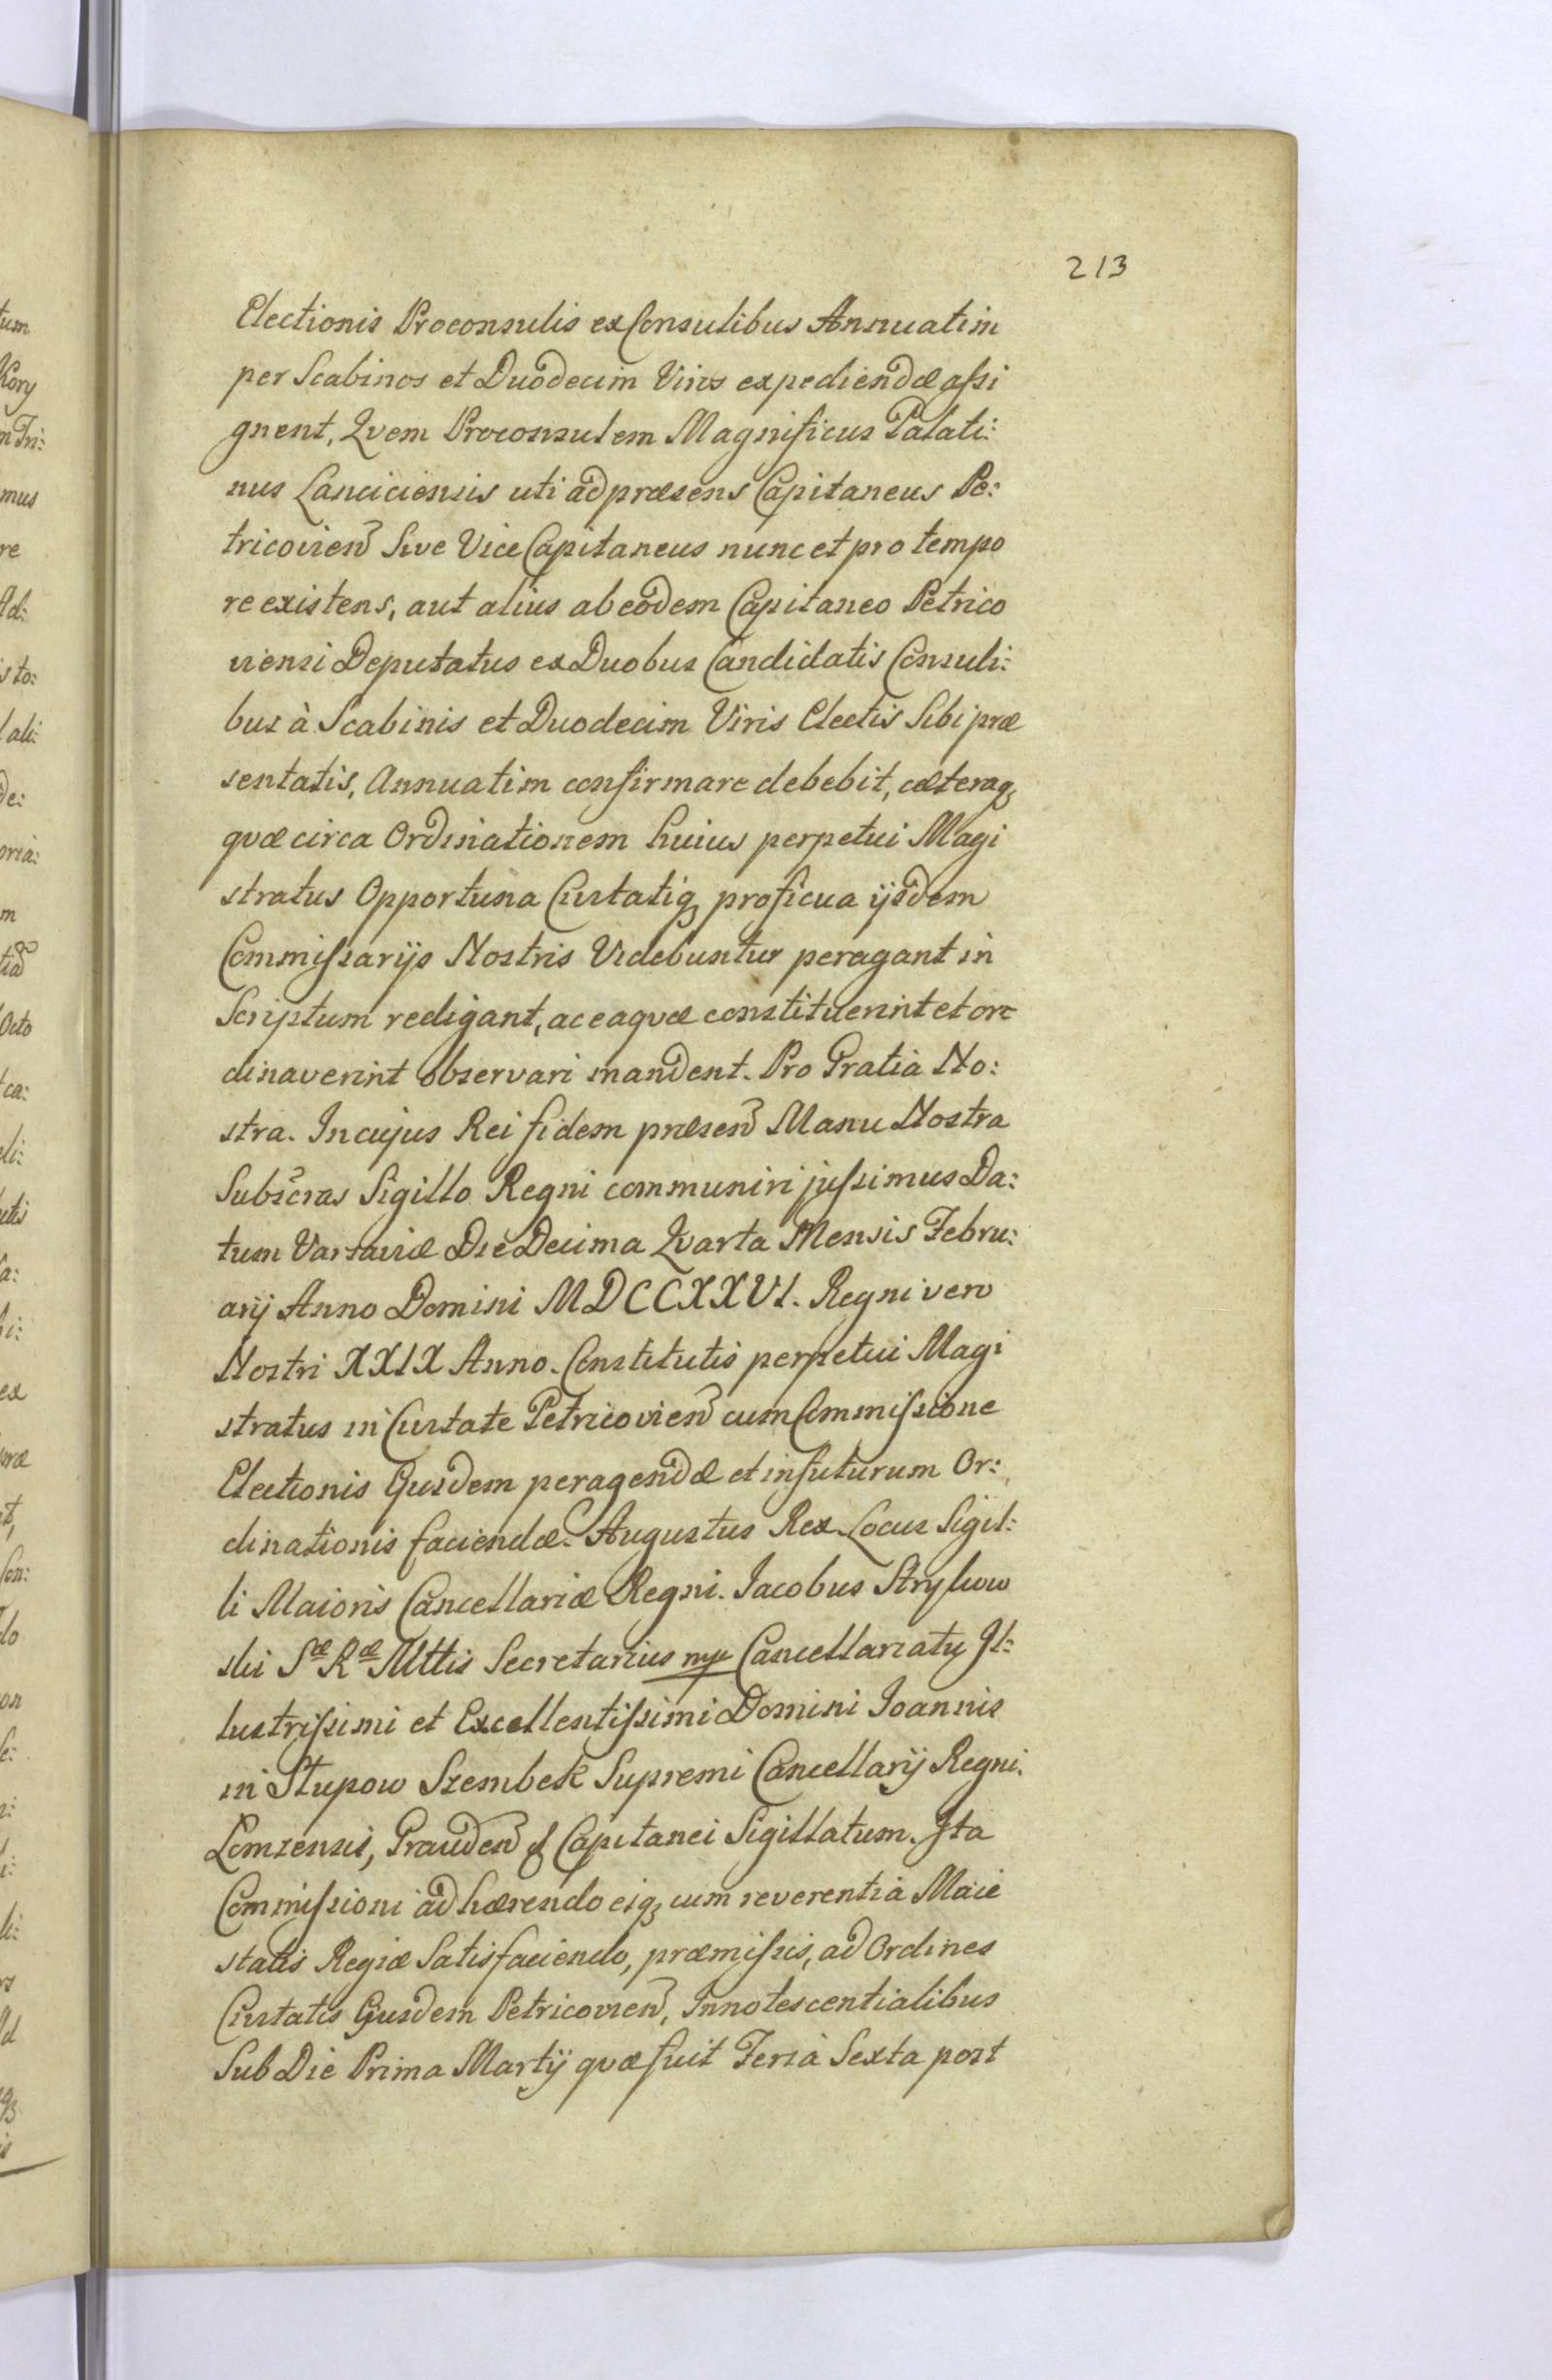 213
Electionis Proconsulis ex Consulibus Annuatim
per Scabinos et Duodecim Viros expediendæ assi
gnent, Qvem Proconsulem Magnificus Palati:
nus Lanciciensis uti ad præsens Capitaneus Pe:
tricovien Sive Vice Capitaneus nunc et pro tempo
re existens, aut alius ab eodem Capitaneo Petrico
viensi Deputatus ex Duobus Candidatis Consuli:
bus à Scabinis et Duodecim Viris Electis Sibi præ
sentatis, Annuatim confirmare debebit, cæteraq,
qvæ circa Ordinationem huius perpetui Magi
stratus Opportuna Civitatiq, proficua ijsdem
Commissarijs Nostris Videbuntur peragant in
Scriptum redigant, ac ea qvæ constituerint et or:
dinaverint observari mandent. Pro Gratia No:
stra. In cujus Rei fidem præsen Manu Nostra
Subscras Sigillo Regni communiri jussimus Da:
tum Varsaviæ Die Decima Qvarta Mensis Febru:
arij Anno Domini MDCCXXVI. Regni vero
Nostri XXIX Anno. Constitutis perpetui Magi
stratus in Civitate Petricovien cum Commissione
Electionis Ejusdem peragendæ et in futurum Or:
dinationis faciendæ. Augustus Rex. Locus Sigil:
li Maioris Cancellariæ Regni. Jacobus
Sæ Ræ Mttis Secretarius mp Cancellariatq Il:
lustrissimi et Excellentissimi Domini Joannis
in Słupow Szembek Supremi Cancellarij Regni.
Lomzensis, Grauden & Capitanei Sigillatum. Ita
Commissioni ad hærendo eiq, cum reverentia Maie
statis Regiæ Satisfaciendo, præmissis, ad Ordines
Civitatis Ejusdem Petricovien, Innotescentialibus
Sub Die Prima Martij qvæ fuit Feria Sexta post